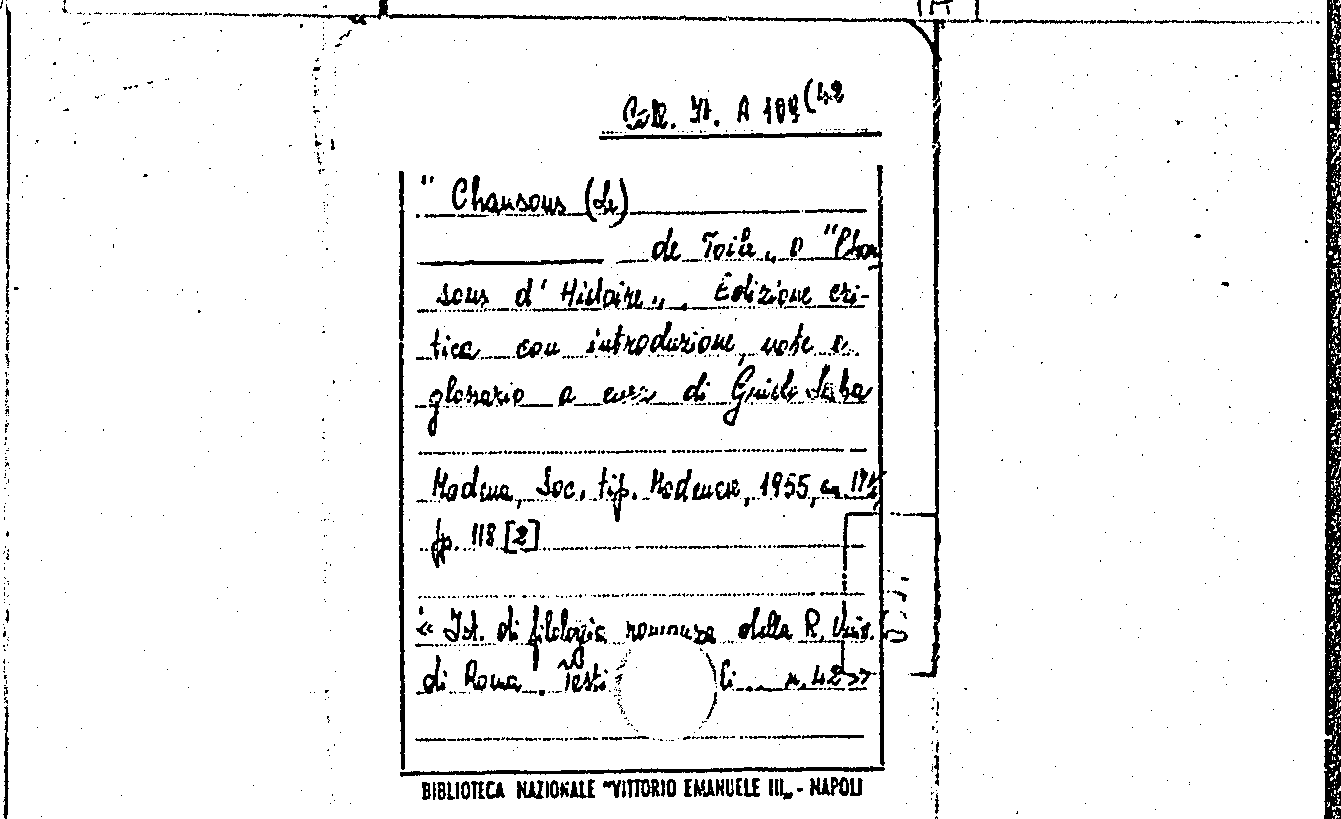 Coll. It. A 109 (42
" Chansons (Le)
de Toile „ o "Chan
sons d' Histoire „ . Edizione cri-
tica con introduzione, note e
glossario a cura di Guido Saba
Modena, Soc. tip. Modenese, 1955, in
pp. 118 [2]
« Ist. di filologia romanza della R. Univ.
di Roma . Testi li n. 42 »
BIBLIOTECA NAZIONALE "VITTORIO EMANUELE III„ - NAPOLI